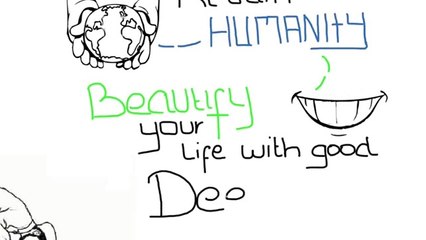 HUMANITY
Beautify
your
Life with good
Dee